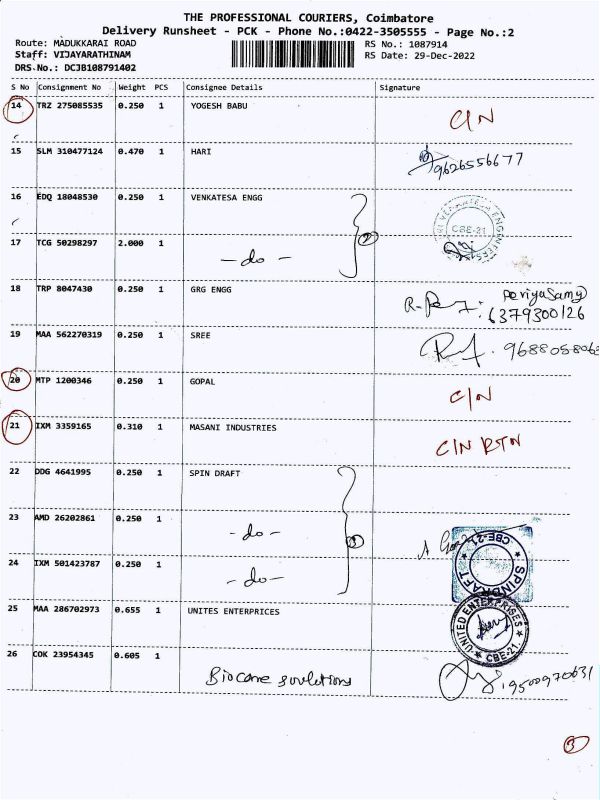 THE PROFESSIONAL COURIERS, Coimbatore
Delivery Runsheet - PCK - Phone No.:0422-3505555 - Page No.:2
Route: MADUKKARAI ROAD RS No.: 1087914
Staff: VIJAYARATHINAM RS Date: 29-Dec-2022
DRS-No.: DCJB108791402
S No Consignment No Weight PCS Consignee Details Signature
14 TRZ 275085535 0.250 1 YOGESH BABU C/N
15 SLM 310477124 0.470 1 HARI 9626556677
16 EDQ 18048530 0.250 1 VENKATESA ENGG CBE-21
17 TCG 50298297 2.000 1 -do- 2
18 TRP 8047430 0.250 1 GRG ENGG Periyasamy
6379300126
19 MAA 562270319 0.250 1 SREE
20 MTP 1200346 0.250 1 GOPAL C/N
21 IXM 3359165 0.310 1 MASANI INDUSTRIES C/N RTN
22 DDG 4641995 0.250 1 SPIN DRAFT
23 AMD 26202861 0.250 1 -do- 3
24 IXM 501423787 0.250 1 -do- SPINDRAFT CBE-21
25 MAA 286702973 0.655 1 UNITES ENTERPRICES UNITED ENTERPRISES CBE-21.
26 COK 23954345 0.605 1 9500970631
3